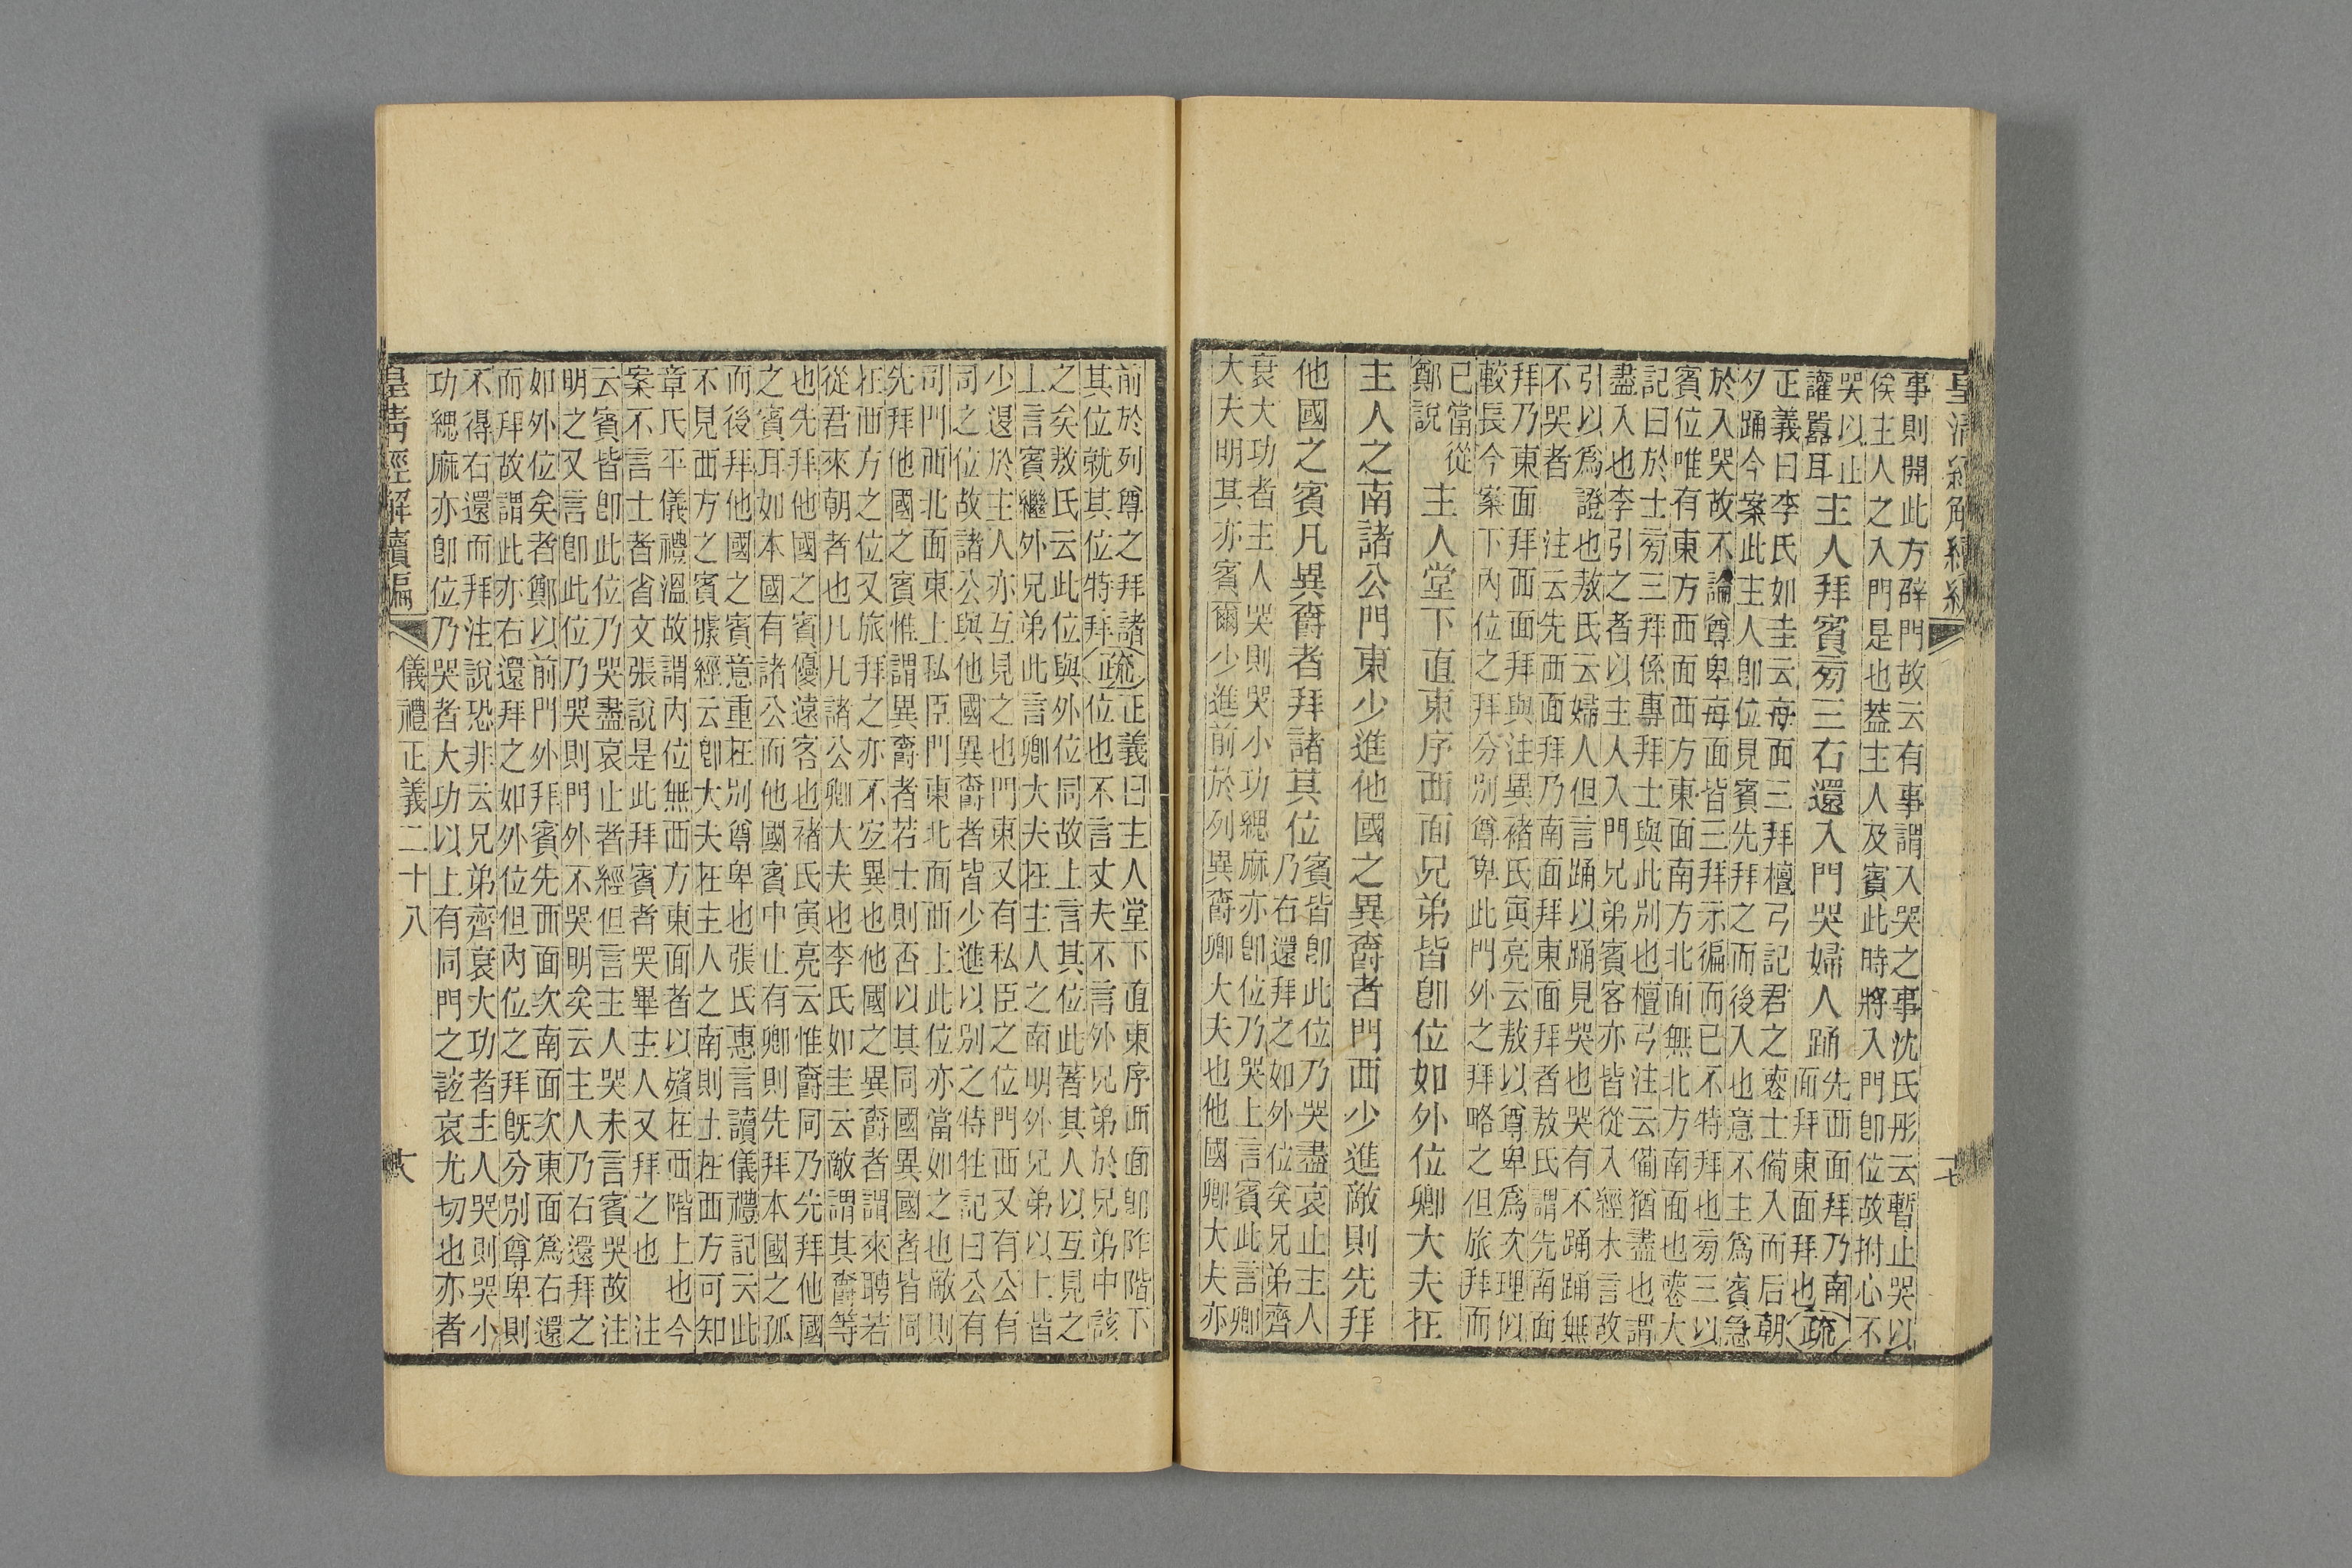 皇清經解續編
十七
事則開此方辟門故云有事謂入哭之事沈氏彤云暫止哭以
俟主人之入門是也葢主人及賓此時將入門卽位故拊心不
哭以止
讙囂耳
主人拜賓旁三右還入門哭婦人踊
先西面拜乃南
面拜東面拜也
疏
正義曰李氏如圭云每面三拜檀弓記君之喪士備入而后朝
夕踊今案此主人卽位見賓先拜之而後入也意不主爲賓急
於入哭故不論尊卑每面皆三拜示徧而已不特拜也旁三以
賓位唯有東方西面西方東面南方北面無北方南面也喪大
記曰於士旁三拜係專拜士與此別也檀弓注云備猶盡也謂
盡入也李引之者以主人入門兄弟賓客亦皆從入經未言故
引以爲證也敖氏云婦人但言踊以踊見哭也哭有不踊踊無
不哭者　注云先西面拜乃南面拜東面拜者敖氏謂先南面
拜乃東面拜西面拜與注異褚氏寅亮云敖以尊卑爲次理似
較長今案下內位之拜分別尊卑此門外之拜略之但旅拜而
已當從
鄭說
主人堂下直東序西面兄弟皆卽位如外位卿大夫在
主人之南諸公門東少進他國之異爵者門西少進敵則先拜
他國之賓凡異爵者拜諸其位
賓皆卽此位乃哭盡哀止主人
乃右還拜之如外位矣兄弟齊
衰大功者主人哭則哭小功緦麻亦卽位乃哭上言賓此言卿
大夫明其亦賓爾少進前於列異爵卿大夫也他國卿大夫亦
前於列尊之拜諸
其位就其位特拜
疏
正義曰主人堂下直東序西面卽阼階下
位也不言丈夫不言外兄弟於兄弟中該
之矣敖氏云此位與外位同故上言其位此著其人以互見之
上言賓繼外兄弟此言卿大夫在主人之南明外兄弟以上皆
少退於主人亦互見之也門東又有私臣之位門西又有公有
司之位故諸公與他國異爵者皆少進以別之特牲記曰公有
司門西北面東上私臣門東北面西上此位亦當如之也敵則
先拜他國之賓惟謂異爵者若士則否以其同國異國者皆同
在西方之位又旅拜之亦不定異也他國之異爵者謂來聘若
從君來朝者也凡凡諸公卿大夫也李氏如圭云敵謂其爵等
也先拜他國之賓優遠客也褚氏寅亮云惟爵同乃先拜他國
之賓耳如本國有諸公而他國賓中止有卿則先拜本國之孤
而後拜他國之賓意重在別尊卑也張氏惠言讀儀禮記云此
不見西方之賓據經云卽大夫在主人之南則士在西方可知
章氏平儀禮溫故謂內位無西方東面者以殯在西階上也今
案不言士者省文張說是此拜賓者哭畢主人又拜之也　注
云賓皆卽此位乃哭盡哀止者經但言主人哭未言賓哭故注
明之又言卽此位乃哭則門外不哭明矣云主人乃右還拜之
如外位矣者鄭以前門外拜賓先西面次南面次東面爲右還
而拜故謂此亦右還拜之如外位但內位之拜旣分別尊卑則
不得右還而拜注說恐非云兄弟齊衰大功者主人哭則哭小
功緦麻亦卽位乃哭者大功以上有同門之該哀尤切也亦者
皇清經解續編
儀禮正義二十八
大